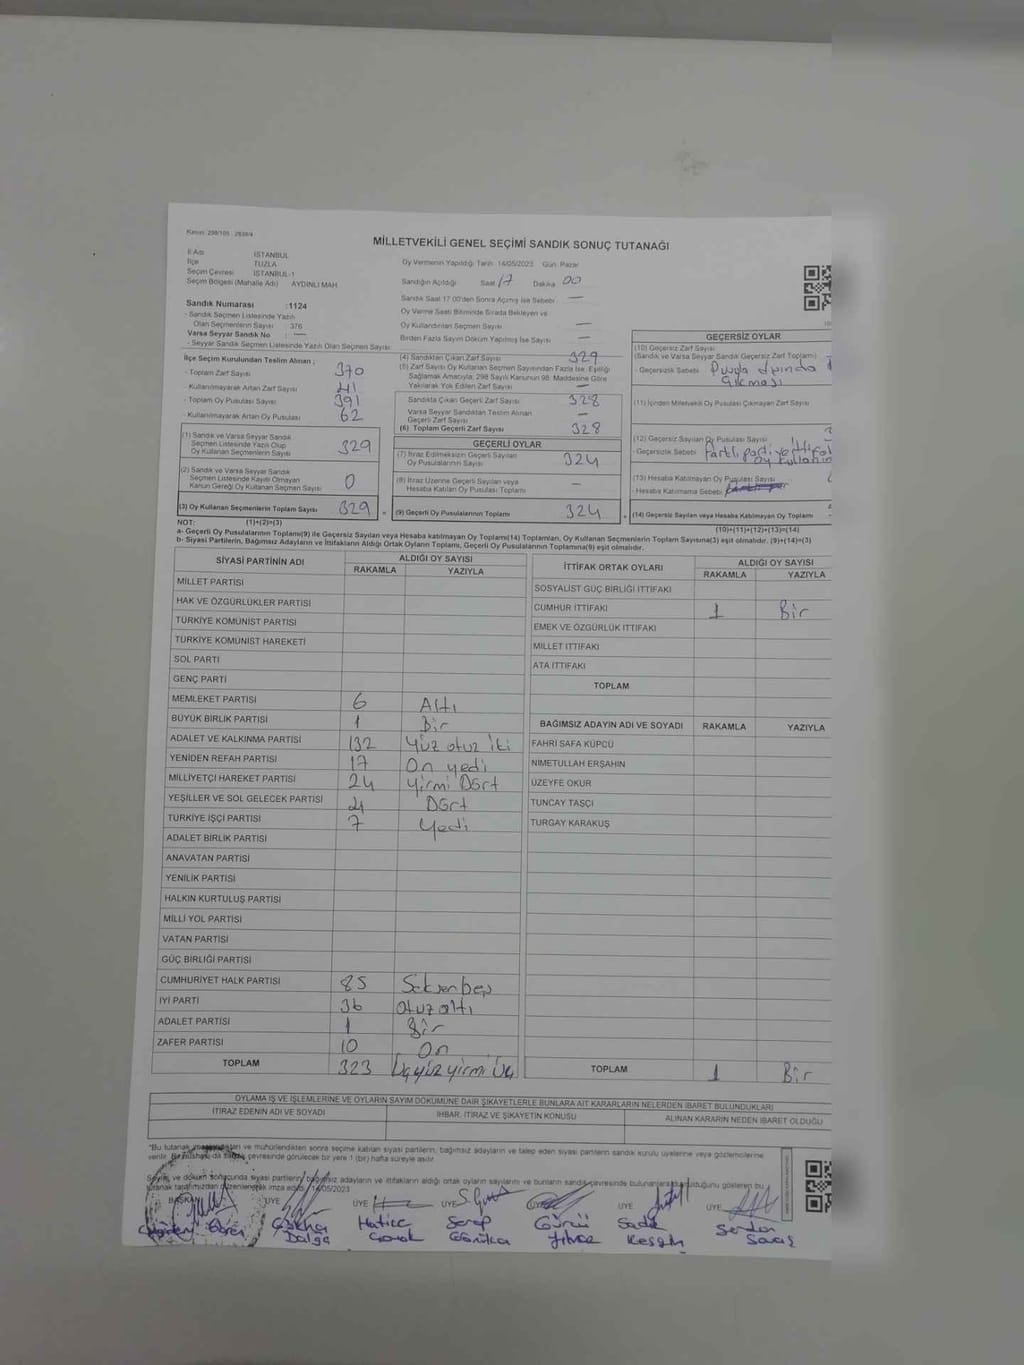 Kanun: 298/105 - 2839/4
MİLLETVEKİLİ GENEL SEÇİMİ SANDIK SONUÇ TUTANAĞI
İl Adı İSTANBUL
İlçe TUZLA
Seçim Çevresi İSTANBUL-1
Seçim Bölgesi (Mahalle Adı) AYDINLI MAH.
Sandık Numarası :1124
- Sandık Seçmen Listesinde Yazılı
Olan Seçmenlerin Sayısı : 376
Varsa Seyyar Sandık No : —
- Seyyar Sandık Seçmen Listesinde Yazılı Olan Seçmen Sayısı:
Oy Vermenin Yapıldığı Tarih: 14/05/2023 Gün: Pazar
Sandığın Açıldığı Saat 17 Dakika 00
Sandık Saat 17.00'den Sonra Açılmış İse Sebebi —
Oy Verme Saati Bitiminde Sırada Bekleyen ve
Oy Kullandırılan Seçmen Sayısı —
Birden Fazla Sayım Döküm Yapılmış İse Sayısı —
İlçe Seçim Kurulundan Teslim Alınan ;
- Toplam Zarf Sayısı 370
- Kullanılmayarak Artan Zarf Sayısı 41
- Toplam Oy Pusulası Sayısı 391
- Kullanılmayarak Artan Oy Pusulası 62
(1) Sandık ve Varsa Seyyar Sandık
Seçmen Listesinde Yazılı Olup
Oy Kullanan Seçmenlerin Sayısı 329
(2) Sandık ve Varsa Seyyar Sandık
Seçmen Listesinde Kayıtlı Olmayan
Kanun Gereği Oy Kullanan Seçmen Sayısı 0
(3) Oy Kullanan Seçmenlerin Toplam Sayısı 329
(4) Sandıktan Çıkan Zarf Sayısı 329
(5) Zarf Sayısı Oy Kullanan Seçmen Sayısından Fazla İse, Eşitliği
Sağlamak Amacıyla; 298 Sayılı Kanunun 98. Maddesine Göre
Yakılarak Yok Edilen Zarf Sayısı —
Sandıkta Çıkan Geçerli Zarf Sayısı 328
Varsa Seyyar Sandıktan Teslim Alınan
Geçerli Zarf Sayısı —
(6) Toplam Geçerli Zarf Sayısı 328
GEÇERLİ OYLAR
(7) İtiraz Edilmeksizin Geçerli Sayılan
Oy Pusulalarının Sayısı 324
(8) İtiraz Üzerine Geçerli Sayılan veya
Hesaba Katılan Oy Pusulası Toplamı —
(9) Geçerli Oy Pusulalarının Toplamı 324
GEÇERSİZ OYLAR
(10) Geçersiz Zarf Sayısı
(Sandık ve Varsa Seyyar Sandık Geçersiz Zarf Toplamı)
- Geçersizlik Sebebi Pusula dışında
Çıkması
(11) İçinden Milletvekili Oy Pusulası Çıkmayan Zarf Sayısı
(12) Geçersiz Sayılan Oy Pusulası Sayısı
- Geçersizlik Sebebi Farklı parti ve ittifak
Oy kullanım
(13) Hesaba Katılmayan Oy Pusulası Sayısı
- Hesaba Katılmama Sebebi
(14) Geçersiz Sayılan veya Hesaba Katılmayan Oy Toplamı
NOT: (1)+(2)=(3)
(10)+(11)+(12)+(13)=(14)
a- Geçerli Oy Pusulalarının Toplamı(9) ile Geçersiz Sayılan veya Hesaba katılmayan Oy Toplamı(14) Toplamları, Oy Kullanan Seçmenlerin Toplam Sayısına(3) eşit olmalıdır. (9)+(14)=(3)
b- Siyasi Partilerin, Bağımsız Adayların ve İttifakların Aldığı Ortak Oyların Toplamı, Geçerli Oy Pusulasının Toplamına(9) eşit olmalıdır.
SİYASİ PARTİNİN ADI ALDIĞI OY SAYISI
RAKAMLA YAZIYLA
MİLLET PARTİSİ
HAK VE ÖZGÜRLÜKLER PARTİSİ
TÜRKİYE KOMÜNİST PARTİSİ
TÜRKİYE KOMÜNİST HAREKETİ
SOL PARTİ
GENÇ PARTİ
MEMLEKET PARTİSİ 6 Altı
BÜYÜK BİRLİK PARTİSİ 1 Bir
ADALET VE KALKINMA PARTİSİ 132 Yüz otuz iki
YENİDEN REFAH PARTİSİ 17 On yedi
MİLLİYETÇİ HAREKET PARTİSİ 24 Yirmi Dört
YEŞİLLER VE SOL GELECEK PARTİSİ 4 Dört
TÜRKİYE İŞÇİ PARTİSİ 7 Yedi
ADALET BİRLİK PARTİSİ
ANAVATAN PARTİSİ
YENİLİK PARTİSİ
HALKIN KURTULUŞ PARTİSİ
MİLLİ YOL PARTİSİ
VATAN PARTİSİ
GÜÇ BİRLİĞİ PARTİSİ
CUMHURİYET HALK PARTİSİ 85 Seksenbeş
İYİ PARTİ 36 Otuzaltı
ADALET PARTİSİ 1 Bir
ZAFER PARTİSİ 10 On
TOPLAM 323 Üçyüzyirmi Üç
İTTİFAK ORTAK OYLARI ALDIĞI OY SAYISI
RAKAMLA YAZIYLA
SOSYALİST GÜÇ BİRLİĞİ İTTİFAKI
CUMHUR İTTİFAKI 1 Bir
EMEK VE ÖZGÜRLÜK İTTİFAKI
MİLLET İTTİFAKI
ATA İTTİFAKI
TOPLAM
BAĞIMSIZ ADAYIN ADI VE SOYADI RAKAMLA YAZIYLA
FAHRİ SAFA KÜPCÜ
NİMETULLAH ERŞAHİN
ÜZEYFE OKUR
TUNCAY TAŞÇI
TURGAY KARAKUŞ
TOPLAM 1 Bir
OYLAMA İŞ VE İŞLEMLERİNE VE OYLARIN SAYIM DÖKÜMÜNE DAİR ŞİKAYETLERLE BUNLARA AİT KARARLARIN NELERDEN İBARET BULUNDUKLARI
İTİRAZ EDENİN ADI VE SOYADI İHBAR, İTİRAZ VE ŞİKAYETİN KONUSU ALINAN KARARIN NEDEN İBARET OLDUĞU
*Bu tutanak imzalandıktan ve mühürlendikten sonra seçime katılan siyasi partilerin, bağımsız adayların ve talep eden siyasi partilerin sandık kurulu üyelerine veya gözlemcilerine
verilir. Bir nüshası da sandık çevresinde görülecek bir yere 1 (bir) hafta süreyle asılır.
Sayım ve döküm sonucunda siyasi partilerin, bağımsız adayların ve ittifakların aldığı ortak oyların sayılarını ve bunların sandık çevresinde bulunanlara duyurulduğunu gösteren bu
tutanak tarafımızdan düzenlenerek imza edildi. 14/05/2023
BAŞKAN ÜYE ÜYE ÜYE ÜYE ÜYE
Gökhan Hatice Serap Sadık Serdar
Dalga Keskin Savaş